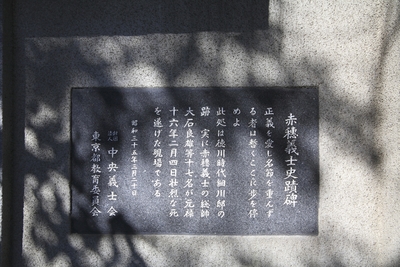 赤穂義士史蹟碑
正義を愛し名節を重んず
る者は暫くここに歩を停
めよ
此処は徳川時代細川邸の
跡 実に赤穂義士の総帥
大石良雄等十七名が元禄
十六年二月四日壮烈な死
を遂げた現場である
昭和三十五年二月二十日
財団法人 中央義士会
東京都教育委員会